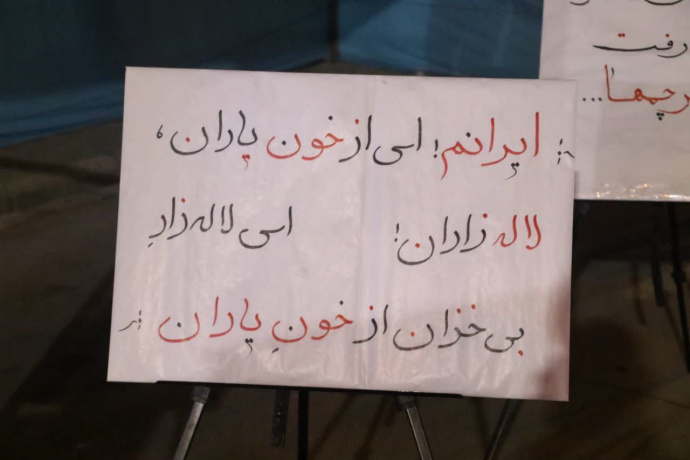 ایرانم! ای از خون یاران،
لاله زاران! ای لاله زارِ
بی خزان از خونِ یاران
رفت
پرچمها...